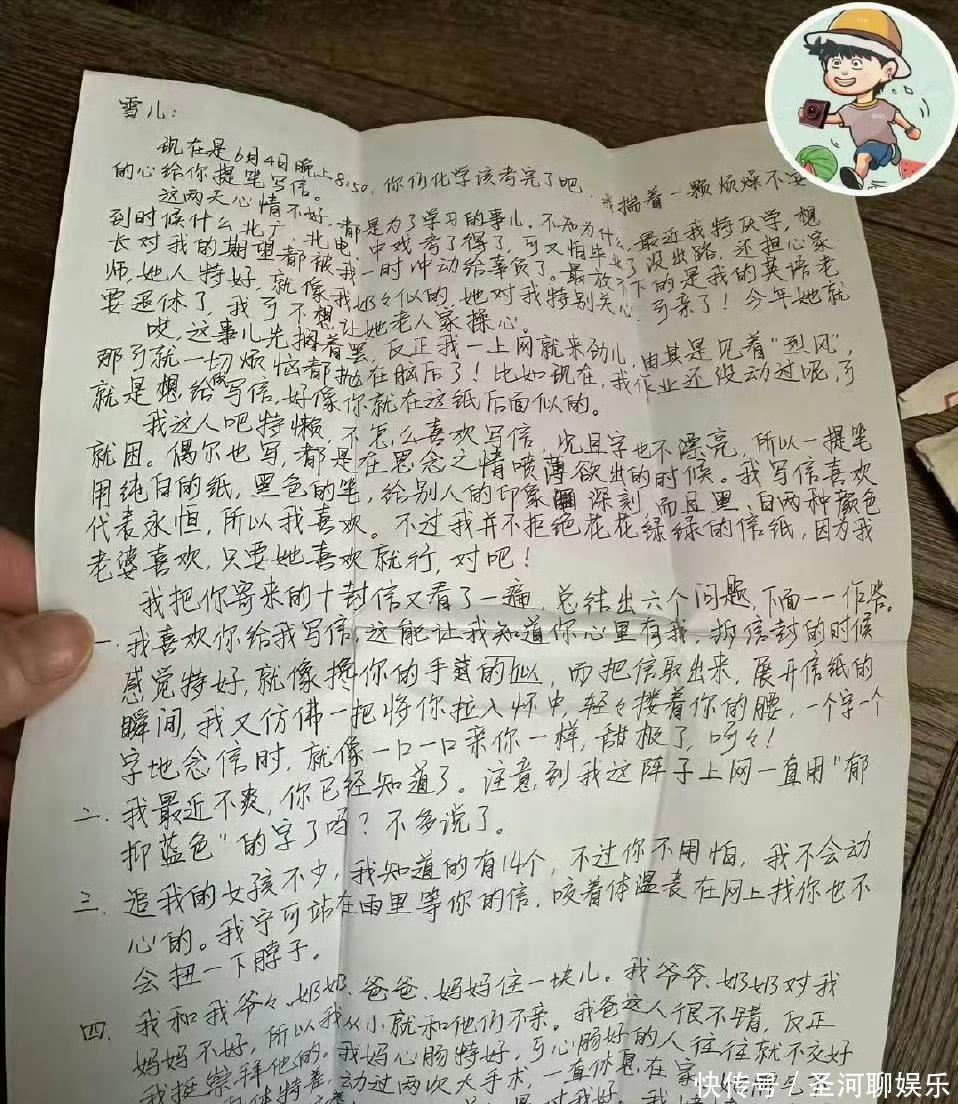 雪儿：
现在是6月4日晚上8:50，你们化学该考完了吧，我揣着一颗烦燥不安
的心给你提笔写信。
这两天心情不好，都是为了学习的事儿。不知为什么，最近我特厌学，想
到时候什么北广、北电、中戏考了得了，可又怕毕业了没出路，还担心家
长对我的期望都被我一时冲动给辜负了。最放不下的是我的英语老
师，她人特好，就像我奶々似的，她对我特别关心，可亲了！今年她就
要退休了，我可不想让她老人家操心。
哎，这事儿先搁着罢，反正我一上网就来劲儿，由其是见着“烈风”，
那可就一切烦恼都抛在脑后了！比如现在，我作业还没动过呢，可
就是想给你写信，好像你就在这纸后面似的。
我这人吧特懒，不怎么喜欢写信，况且字也不漂亮，所以一提笔
就困。偶尔也写，都是在思念之情喷薄欲出的时候。我写信喜欢
用纯白的纸，黑色的笔，给别人的印象深刻，而且黑、白两种颜色
代表永恒，所以我喜欢。不过我并不拒绝花花绿绿的信纸，因为我
老婆喜欢，只要她喜欢就行，对吧！
我把你寄来的十封信又看了一遍，总结出六个问题，下面一一作答。
一、我喜欢你给我写信，这能让我知道你心里有我，拆信封的时候
感觉特好，就像搀你的手似的，而把信取出来，展开信纸的
瞬间，我又仿佛一把将你拉入怀中，轻々搂着你的腰，一个字一个
字地念信时，就像一口一口亲你一样，甜极了，呵々！
二、我最近不爽，你已经知道了。注意到我这阵子上网一直用“郁
抑蓝色”的字了吗？不多说了。
三、追我的女孩不少，我知道的有14个，不过你不用怕，我不会动
心的。我宁可站在雨里等你的信，咬着体温表在网上找你也不
会扭一下脖子。
四、我和我爷々、奶奶、爸爸、妈妈住一块儿。我爷爷、奶奶对我
妈妈不好，所以我从小就和他们不亲。我爸这人很不错，反正
我挺崇拜他的。我妈心肠特好，可心肠好的人往往就不交好
动过两次大手术，一直休息在家
快传号 / 圣河聊娱乐